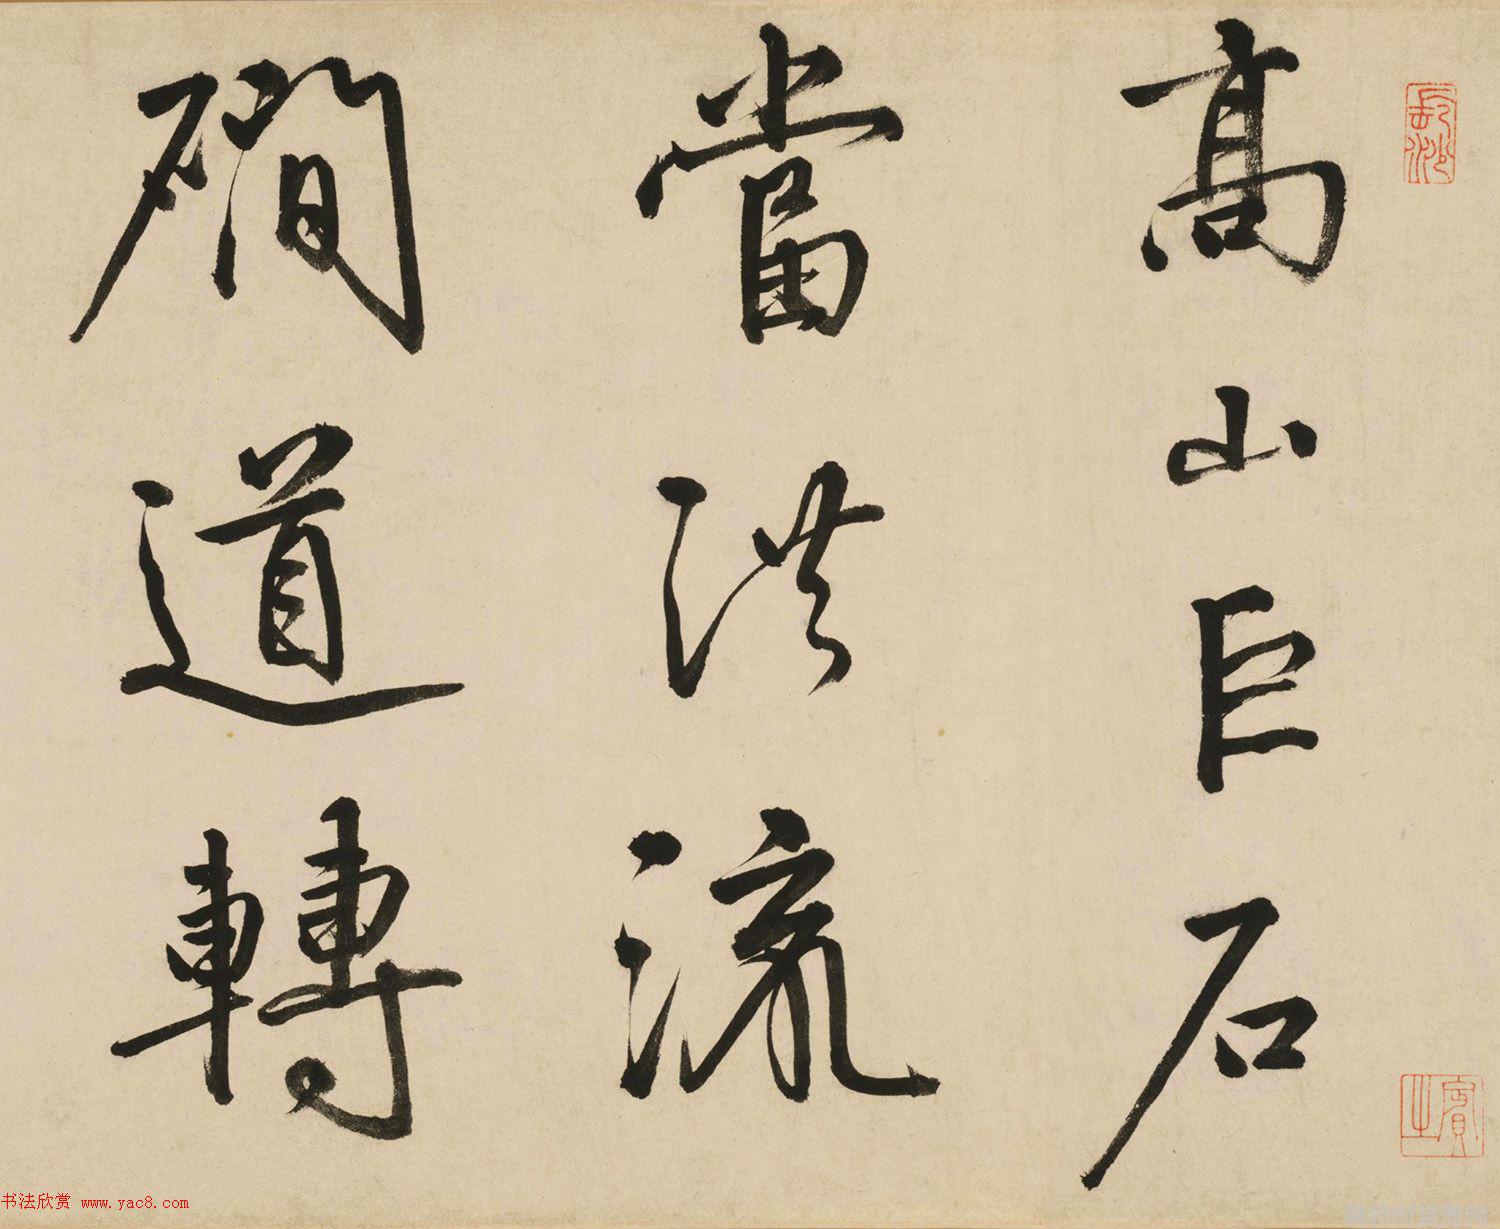 高山巨石
當洪流
磵道轉
長沙
賓之
书法欣赏 www.yac8.com